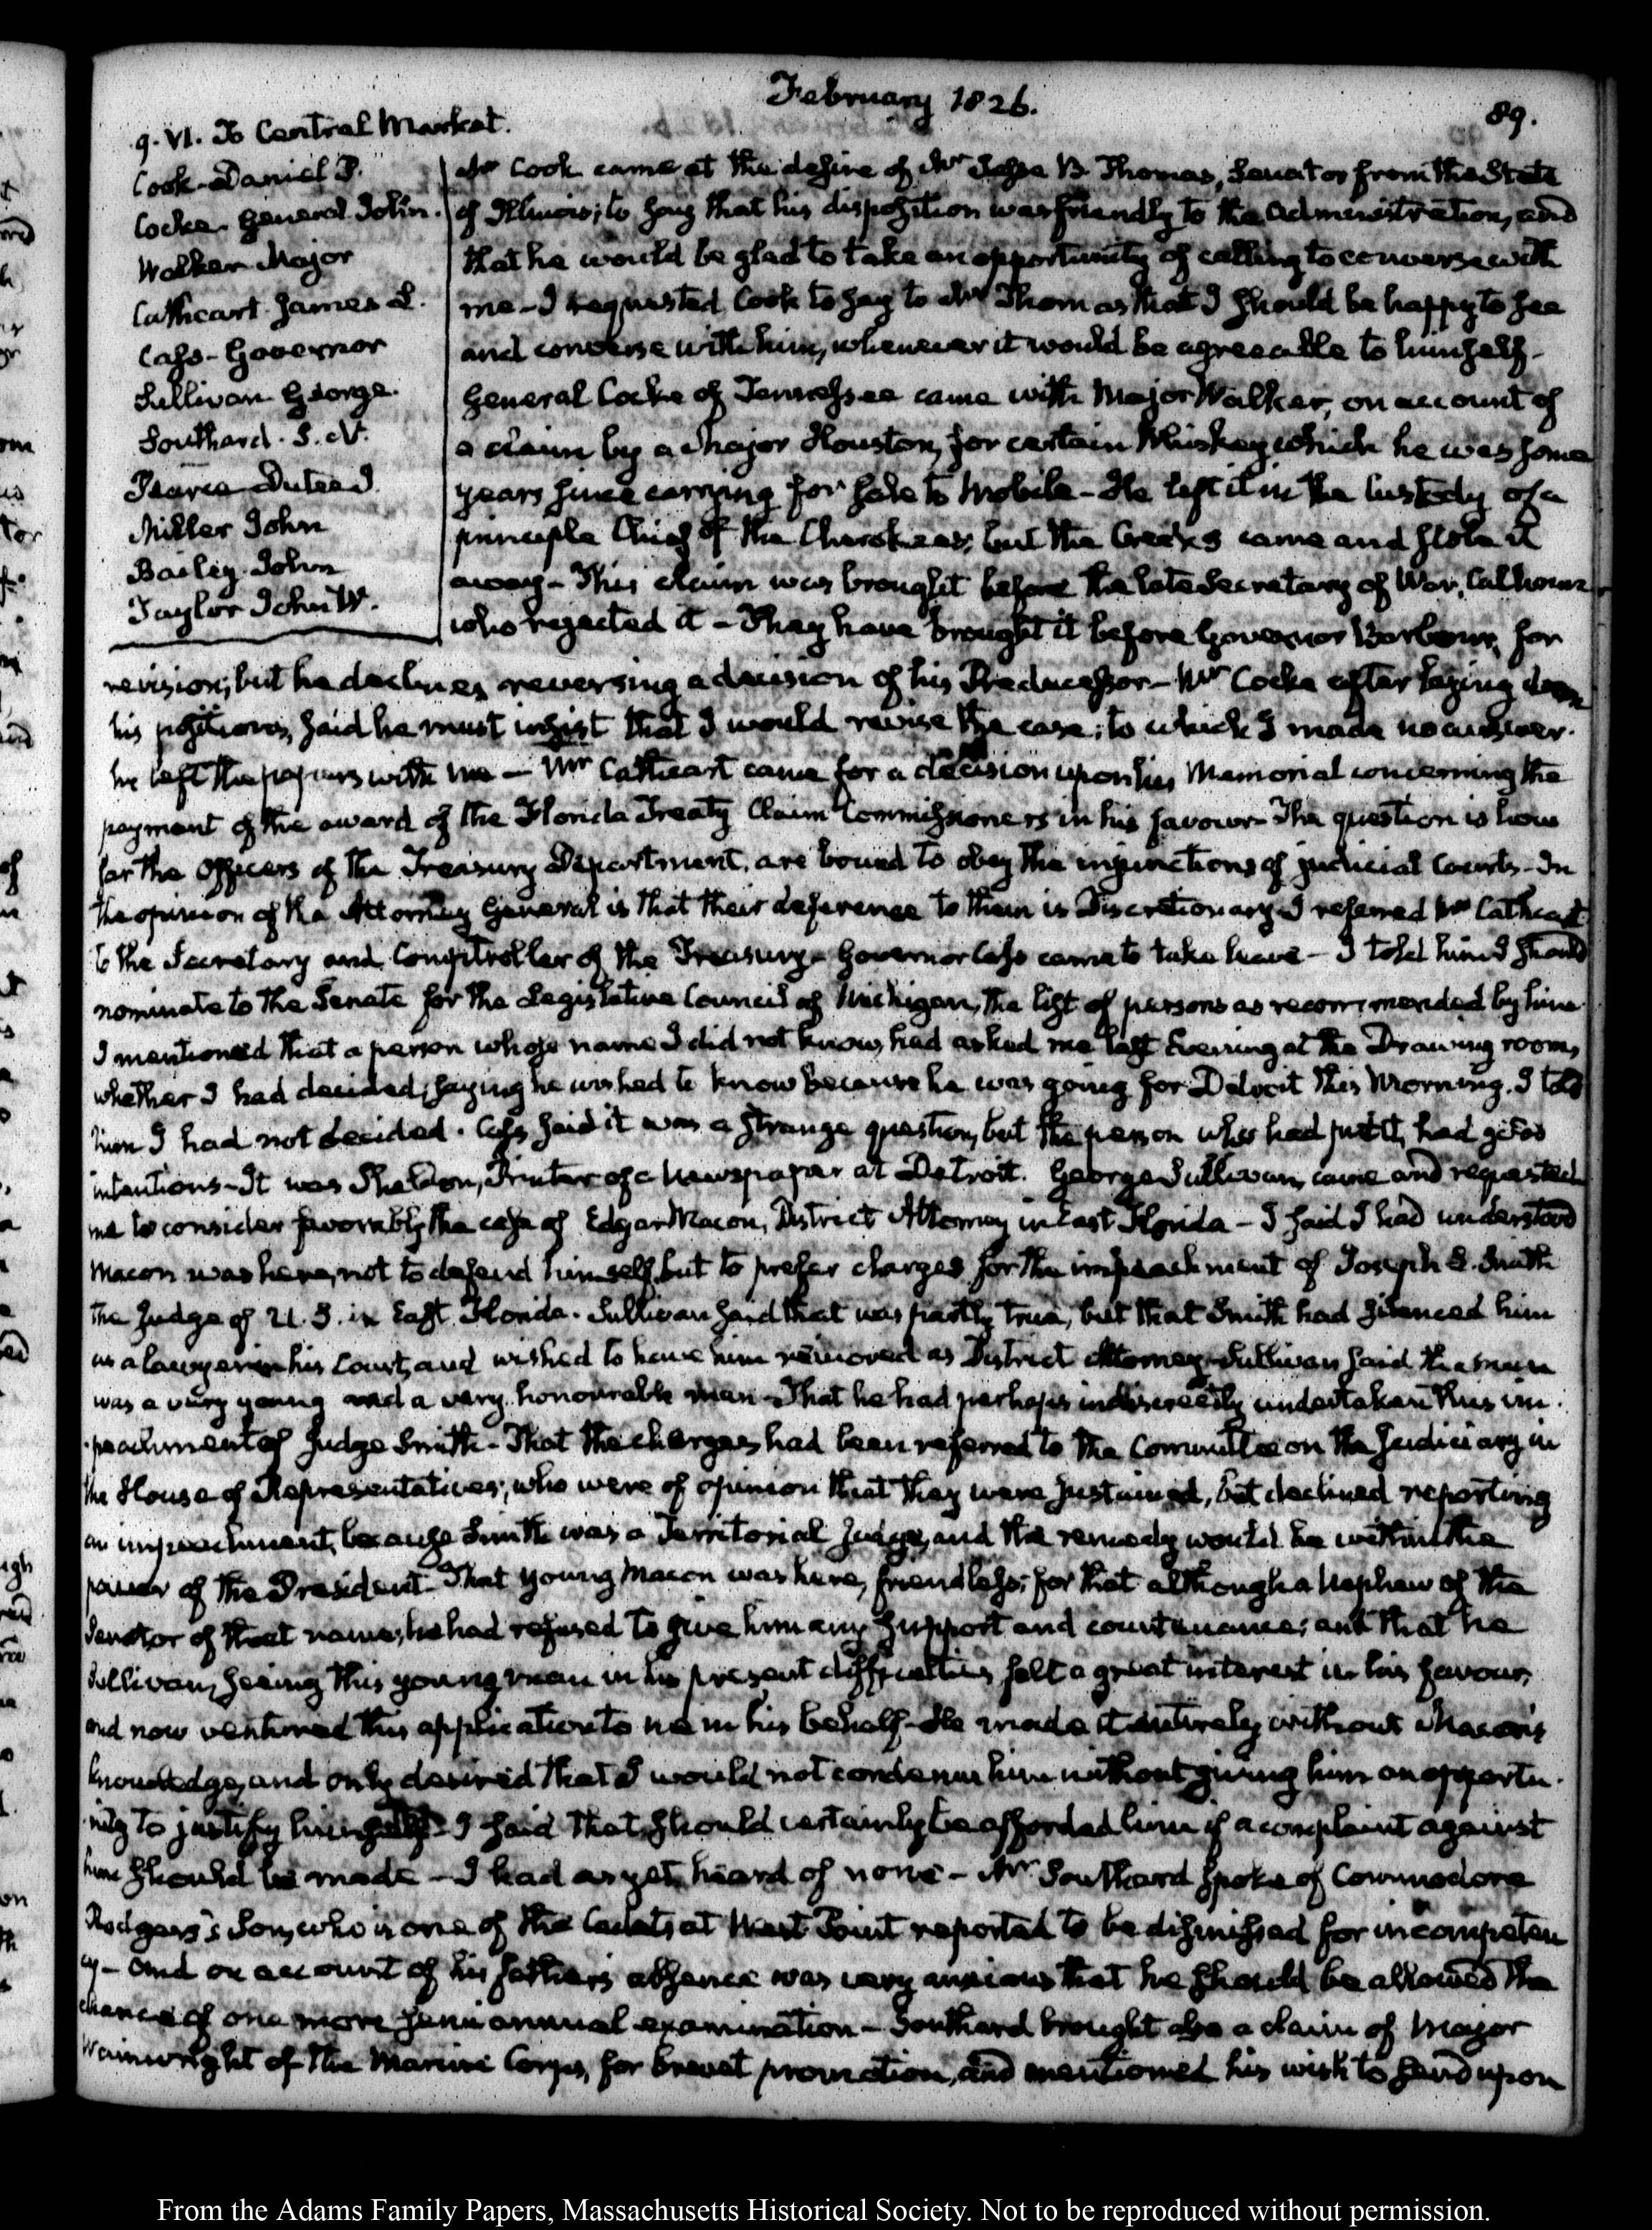 February 1826.
89.
9. VI. To Central Market.
Cook- Daniel P.
Cocke- General John.
Walker Major
Cathcart James L.
Cass- Governor
Sullivan George.
Southard. S. L.
Pearce Dutee J.
Miller John
Bailey. John
Taylor John W.
Mr Cook came at the desire of Mr Jesse B. Thomas, Senator from the State
of Illinois; to say that his disposition was friendly to the Administration, and
that he would be glad to take an opportunity of calling to converse with
me- I requested Cook to say to Mr Thomas that I should be happy to see
and converse with him, whenever it would be agreeable to himself-
General Cocke of Tennessee came with Major Walker, on account of
a claim by a Major Houston, for certain Whiskey which he was some
years since carrying for sale to Mobile- He left it in the custody of a
principle Chief of the Cherokees; but the Creeks came and stole it
away- This claim was brought before the late Secretary of War, Calhoun
who rejected it- They have brought it before Governor Barbour, for
revision; but he declines reversing a decision of his Predecessor- Mr Cocke after laying down
his positions, said he must insist that I would revise the case; to which I made no answer.
he left the papers with me- Mr Cathcart came for a decision upon his Memorial concerning the
payment of the award of the Florida Treaty Claim Commissioners in his favour- The question is how
far the Officers of the Treasury Department, are bound to obey the injunctions of judicial Courts- In
the opinion of the Attorney General is that their deference to them is Discretionary- I referred Mr Cathcart
to the Secretary and Comptroller of the Treasury- Governor Cass came to take leave- I told him I should
nominate to the Senate for the Legislative Council of Michigan, the list of persons as recommended by him
I mentioned that a person whose name I did not know, had asked me last Evening at the Drawing room,
whether I had decided; saying he wished to know because he was going for Detroit this Morning. I told
him I had not decided. Cass said it was a strange question, but the person who had put it, had good
intentions- It was Sheldon, Printer of a Newspaper at Detroit. George Sullivan, came and requested
me to consider favorably the case of Edgar Macon, District Attorney in East Florida- I said I had understood
Macon was here, not to defend himself, but to prefer charges for the impeachment of Joseph L. Smith
the Judge of U. S. in East Florida. Sullivan said that was partly true, but that Smith had silenced him
as a lawyer in his Court, and wished to have him removed as District Attorney- Sullivan said the man
was a very young and a very honourable man- That he had perhaps indiscreetly undertaken this im-
peachment of Judge Smith- That the charges had been referred to the Committee on the Judiciary in
the House of Representatives; who were of opinion that they were sustained, but declined reporting
an impeachment, because Smith was a Territorial Judge, and the remedy would be within the
power of the President- That young Macon was here, friendless; for that although a Nephew of the
Senator of that name, he had refused to give him any support and countenance; and that he
Sullivan, seeing this young man in his present difficulties felt a great interest in his favour,
and now ventured this application to me in his behalf- He made it entirely without Macon's
knowledge, and only desired that I would not condemn him without giving him an opportu-
nity to justify himself- I said that should certainly be afforded him if a complaint against
him should be made- I had as yet heard of none- Mr Southard spoke of Commodore
Rodgers's Son, who is one of the Cadets at West Point reported to be dismissed for incompeten
cy- and on account of his father's absence was very anxious that he should be allowed the
chance of one more semi annual examination- Southard brought also a claim of Major
Wainwright of the Marine Corps, for brevet promotion, and mentioned his wish to send upon
From the Adams Family Papers, Massachusetts Historical Society. Not to be reproduced without permission.